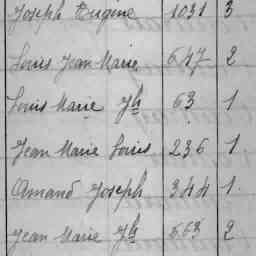 Joseph Eugène 1031 3
Louis Jean Marie 647 2
Louis Marie Jh 63 1
Jean Marie Louis 236 1.
Amand Joseph 344 1.
Jean Marie Jh 563 2